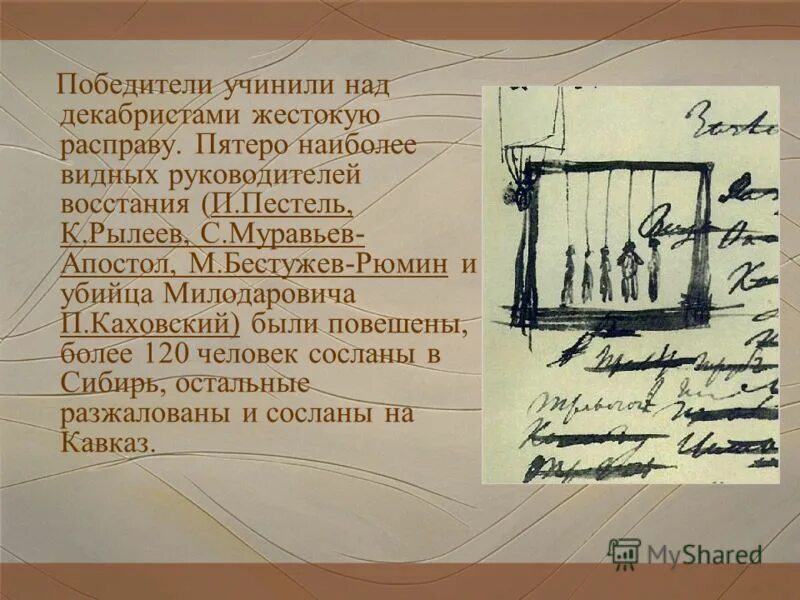 Победители учинили над
декабристами жестокую
расправу. Пятеро наиболее
видных руководителей
восстания (П.Пестель,
К.Рылеев, С.Муравьев-
Апостол, М.Бестужев-Рюмин и
убийца Милодаровича
П.Каховский) были повешены,
более 120 человек сосланы в
Сибирь, остальные
разжалованы и сосланы на
Кавказ.
MyShared